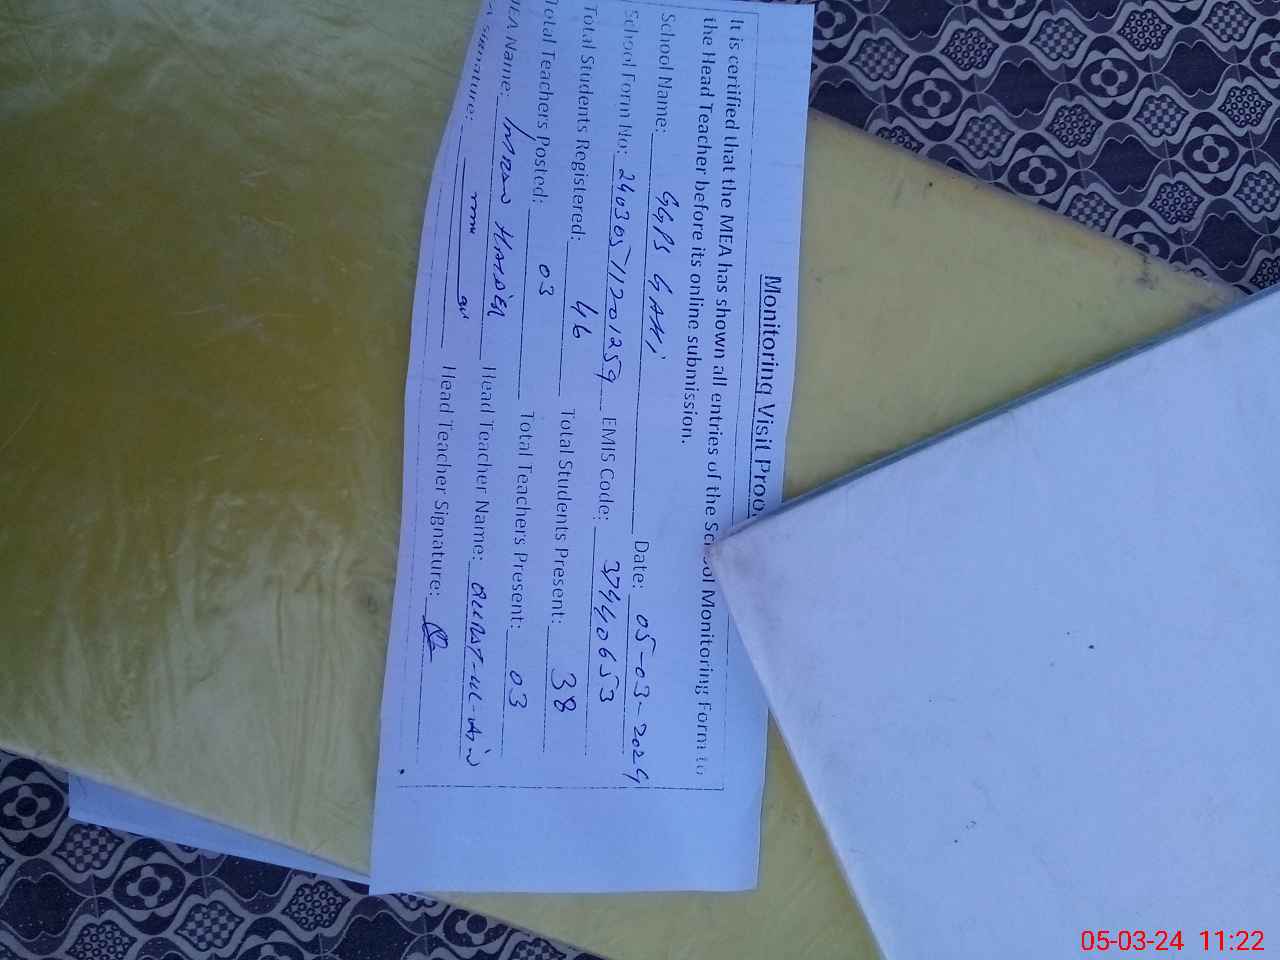 Monitoring Visit Proo
It is certified that the MEA has shown all entries of the School Monitoring Form to
the Head Teacher before its online submission.
School Name: GGPS GAHI Date: 05-03-2024
School Form No: 24030511201259 EMIS Code: 37440653
Total Students Registered: 46 Total Students Present: 38
Total Teachers Posted: 03 Total Teachers Present: 03
Name: Head Teacher Name:
Signature: Head Teacher Signature:
05-03-24 11:22